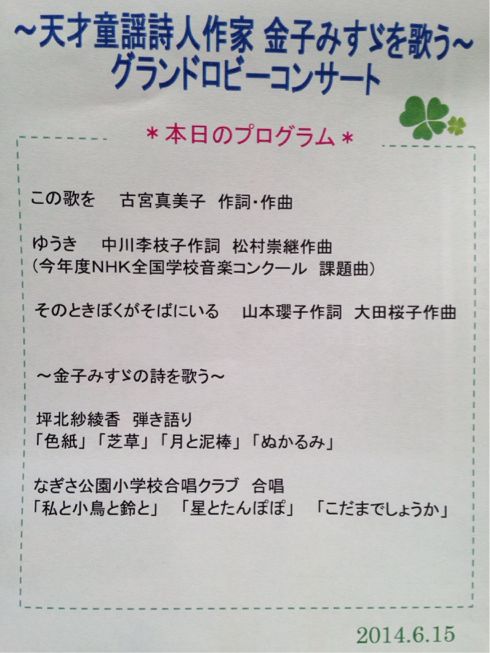 ～天才童謡詩人作家 金子みすゞを歌う～
グランドロビーコンサート
＊本日のプログラム＊
この歌を　古宮真美子 作詞・作曲
ゆうき　中川李枝子作詞 松村崇継作曲
（今年度NHK全国学校音楽コンクール 課題曲）
そのときぼくがそばにいる　山本瓔子作詞 大田桜子作曲
～金子みすゞの詩を歌う～
坪北紗綾香 弾き語り
「色紙」「芝草」「月と泥棒」「ぬかるみ」
なぎさ公園小学校合唱クラブ 合唱
「私と小鳥と鈴と」　「星とたんぽぽ」　「こだまでしょうか」
2014.6.15